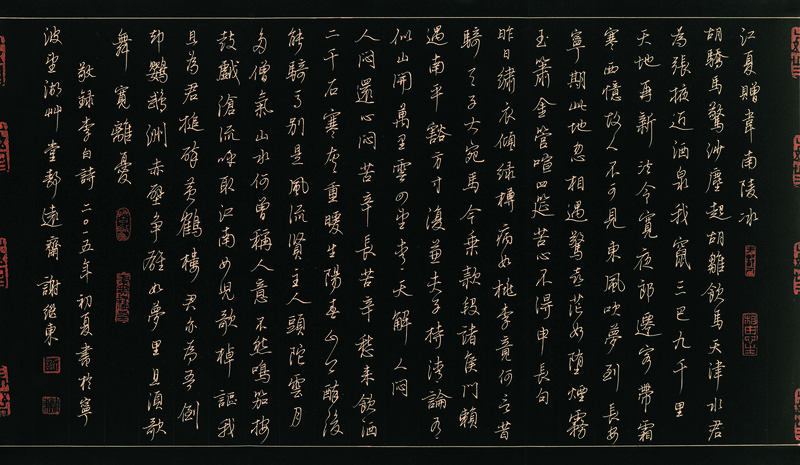 江夏贈韋南陵冰
胡驕馬驚沙塵起胡雛飲馬天津水君
為張掖近酒泉我竄三巴九千里
天地再新法令寬夜郎遷客帶霜
寒西憶故人不可見東風吹夢到長安
寧期此地忽相遇驚喜茫如墮煙霧
玉簫金管喧四筵苦心不得申長句
昨日繡衣傾綠樽病如桃李竟何言昔
騎天子大宛馬今乘款段諸侯門賴
遇南平豁方寸復兼夫子持清論有
似山開萬里雲四望青天解人悶
人悶還心悶苦辛長苦辛愁來飲酒
二千石寒灰重暖生陽春山公醉後
能騎馬別是風流賢主人頭陀雲月
多僧氣山水何曾稱人意不然鳴笳按
鼓戲滄流呼取江南女兒歌棹謳我
且為君槌碎黃鶴樓君亦為吾倒
卻鸚鵡洲赤壁爭雄如夢里且須歌
舞寬離憂
敬録李白詩二〇一五年初夏書於寧
波望湖艸堂鄀遠齋謝继東